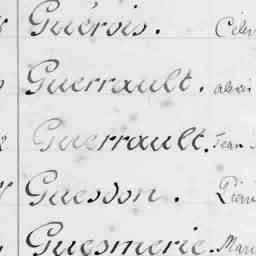 Guérois.
Guerrault. alexis
Guerrault. Jean
Guesdon.
Guesmerie. Mari